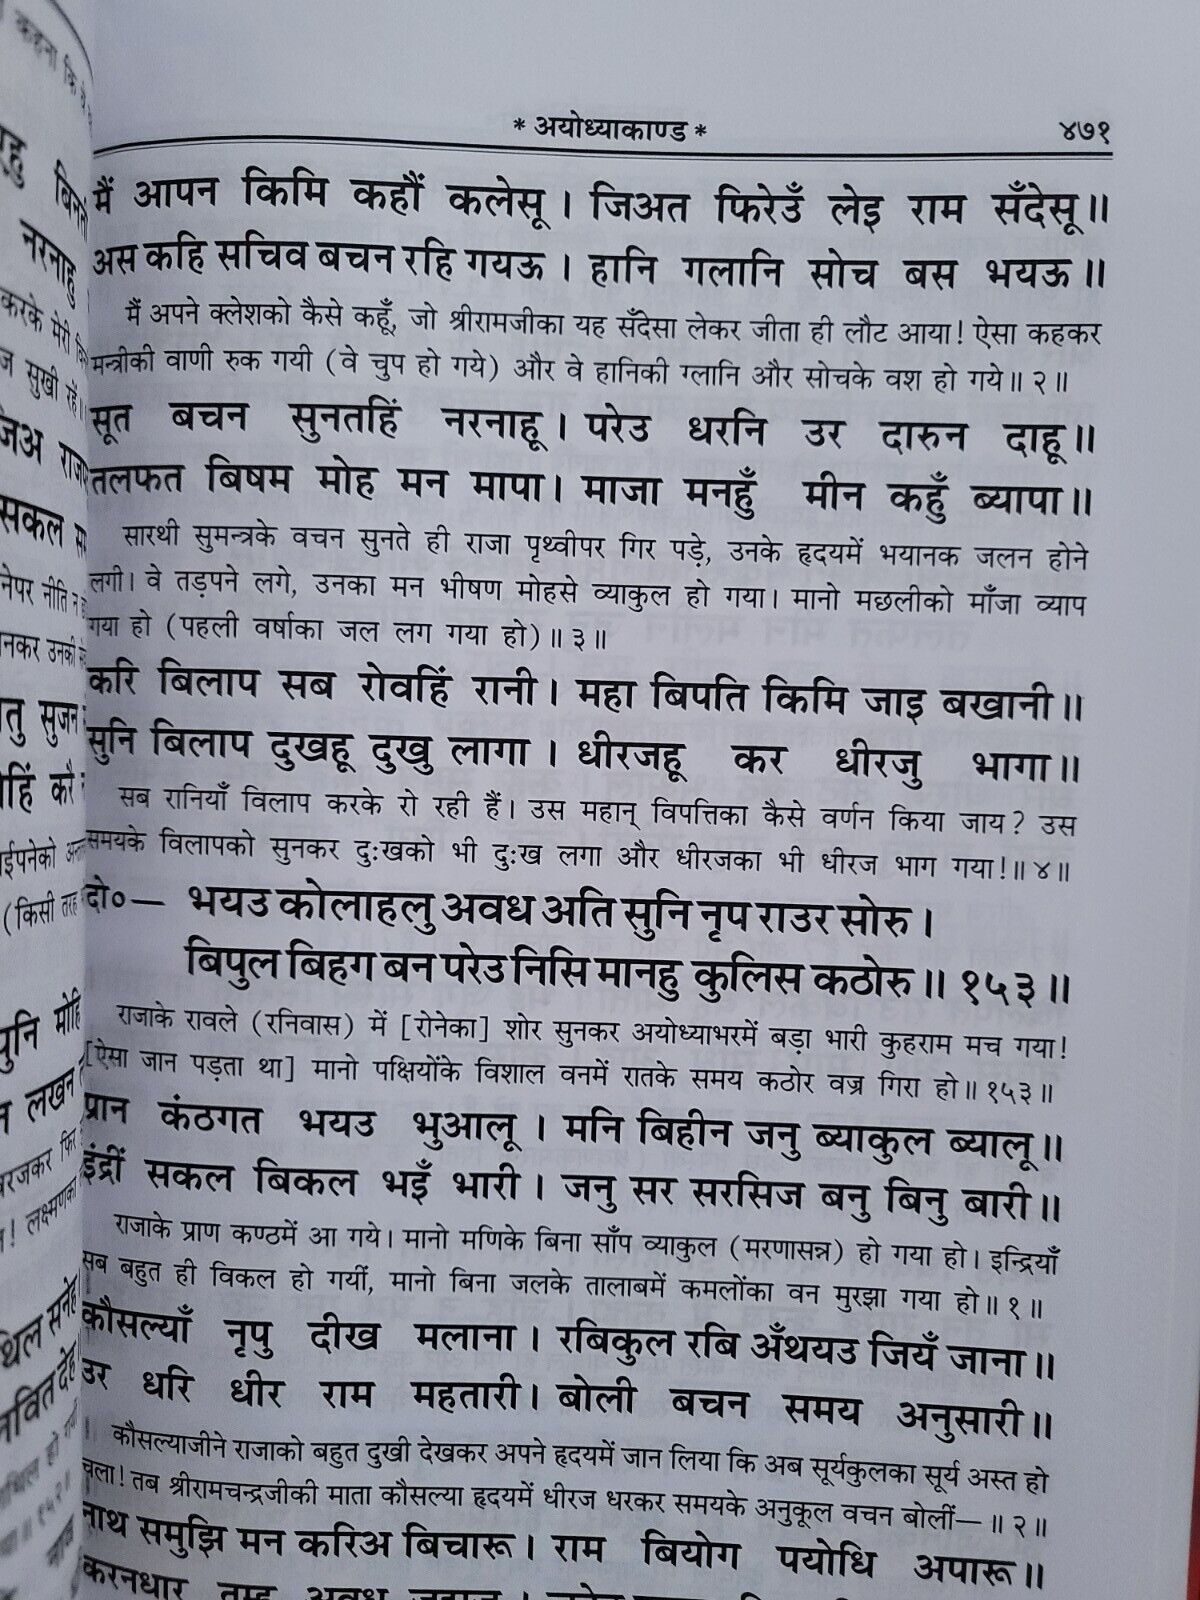 * अयोध्याकाण्ड *
४७१
मैं आपन किमि कहौं कलेसू । जिअत फिरेउँ लेइ राम सँदेसू ॥
अस कहि सचिव बचन रहि गयऊ । हानि गलानि सोच बस भयऊ ॥
मैं अपने क्लेशको कैसे कहूँ, जो श्रीरामजीका यह सँदेसा लेकर जीता ही लौट आया! ऐसा कहकर
मन्त्रीकी वाणी रुक गयी (वे चुप हो गये) और वे हानिकी ग्लानि और सोचके वश हो गये॥ २॥
सूत बचन सुनतहिं नरनाहू । परेउ धरनि उर दारुन दाहू ॥
तलफत बिषम मोह मन मापा । माजा मनहुँ मीन कहुँ ब्यापा ॥
सारथी सुमन्त्रके वचन सुनते ही राजा पृथ्वीपर गिर पड़े, उनके हृदयमें भयानक जलन होने
लगी। वे तड़पने लगे, उनका मन भीषण मोहसे व्याकुल हो गया। मानो मछलीको माँजा व्याप
गया हो (पहली वर्षाका जल लग गया हो)॥ ३॥
करि बिलाप सब रोवहिं रानी । महा बिपति किमि जाइ बखानी ॥
सुनि बिलाप दुखहू दुखु लागा । धीरजहू कर धीरजु भागा ॥
सब रानियाँ विलाप करके रो रही हैं। उस महान् विपत्तिका कैसे वर्णन किया जाय? उस
समयके विलापको सुनकर दुःखको भी दुःख लगा और धीरजका भी धीरज भाग गया!॥ ४॥
दो०— भयउ कोलाहलु अवध अति सुनि नृप राउर सोरु ।
बिपुल बिहग बन परेउ निसि मानहु कुलिस कठोरु ॥ १५३॥
राजाके रावले (रनिवास) में [रोनेका] शोर सुनकर अयोध्याभरमें बड़ा भारी कुहराम मच गया!
[ऐसा जान पड़ता था] मानो पक्षियोंके विशाल वनमें रातके समय कठोर वज्र गिरा हो॥ १५३॥
प्रान कंठगत भयउ भुआलू । मनि बिहीन जनु ब्याकुल ब्यालू ॥
इंद्रीं सकल बिकल भइँ भारी । जनु सर सरसिज बनु बिनु बारी ॥
राजाके प्राण कण्ठमें आ गये। मानो मणिके बिना साँप व्याकुल (मरणासन्न) हो गया हो। इन्द्रियाँ
सब बहुत ही विकल हो गयीं, मानो बिना जलके तालाबमें कमलोंका वन मुरझा गया हो॥ १॥
कौसल्याँ नृपु दीख मलाना । रबिकुल रबि अँथयउ जियँ जाना ॥
उर धरि धीर राम महतारी । बोली बचन समय अनुसारी ॥
कौसल्याजीने राजाको बहुत दुखी देखकर अपने हृदयमें जान लिया कि अब सूर्यकुलका सूर्य अस्त हो
चला! तब श्रीरामचन्द्रजीकी माता कौसल्या हृदयमें धीरज धरकर समयके अनुकूल वचन बोलीं—॥ २॥
नाथ समुझि मन करिअ बिचारू । राम बियोग पयोधि अपारू ॥
करनधार तुम्ह अवध